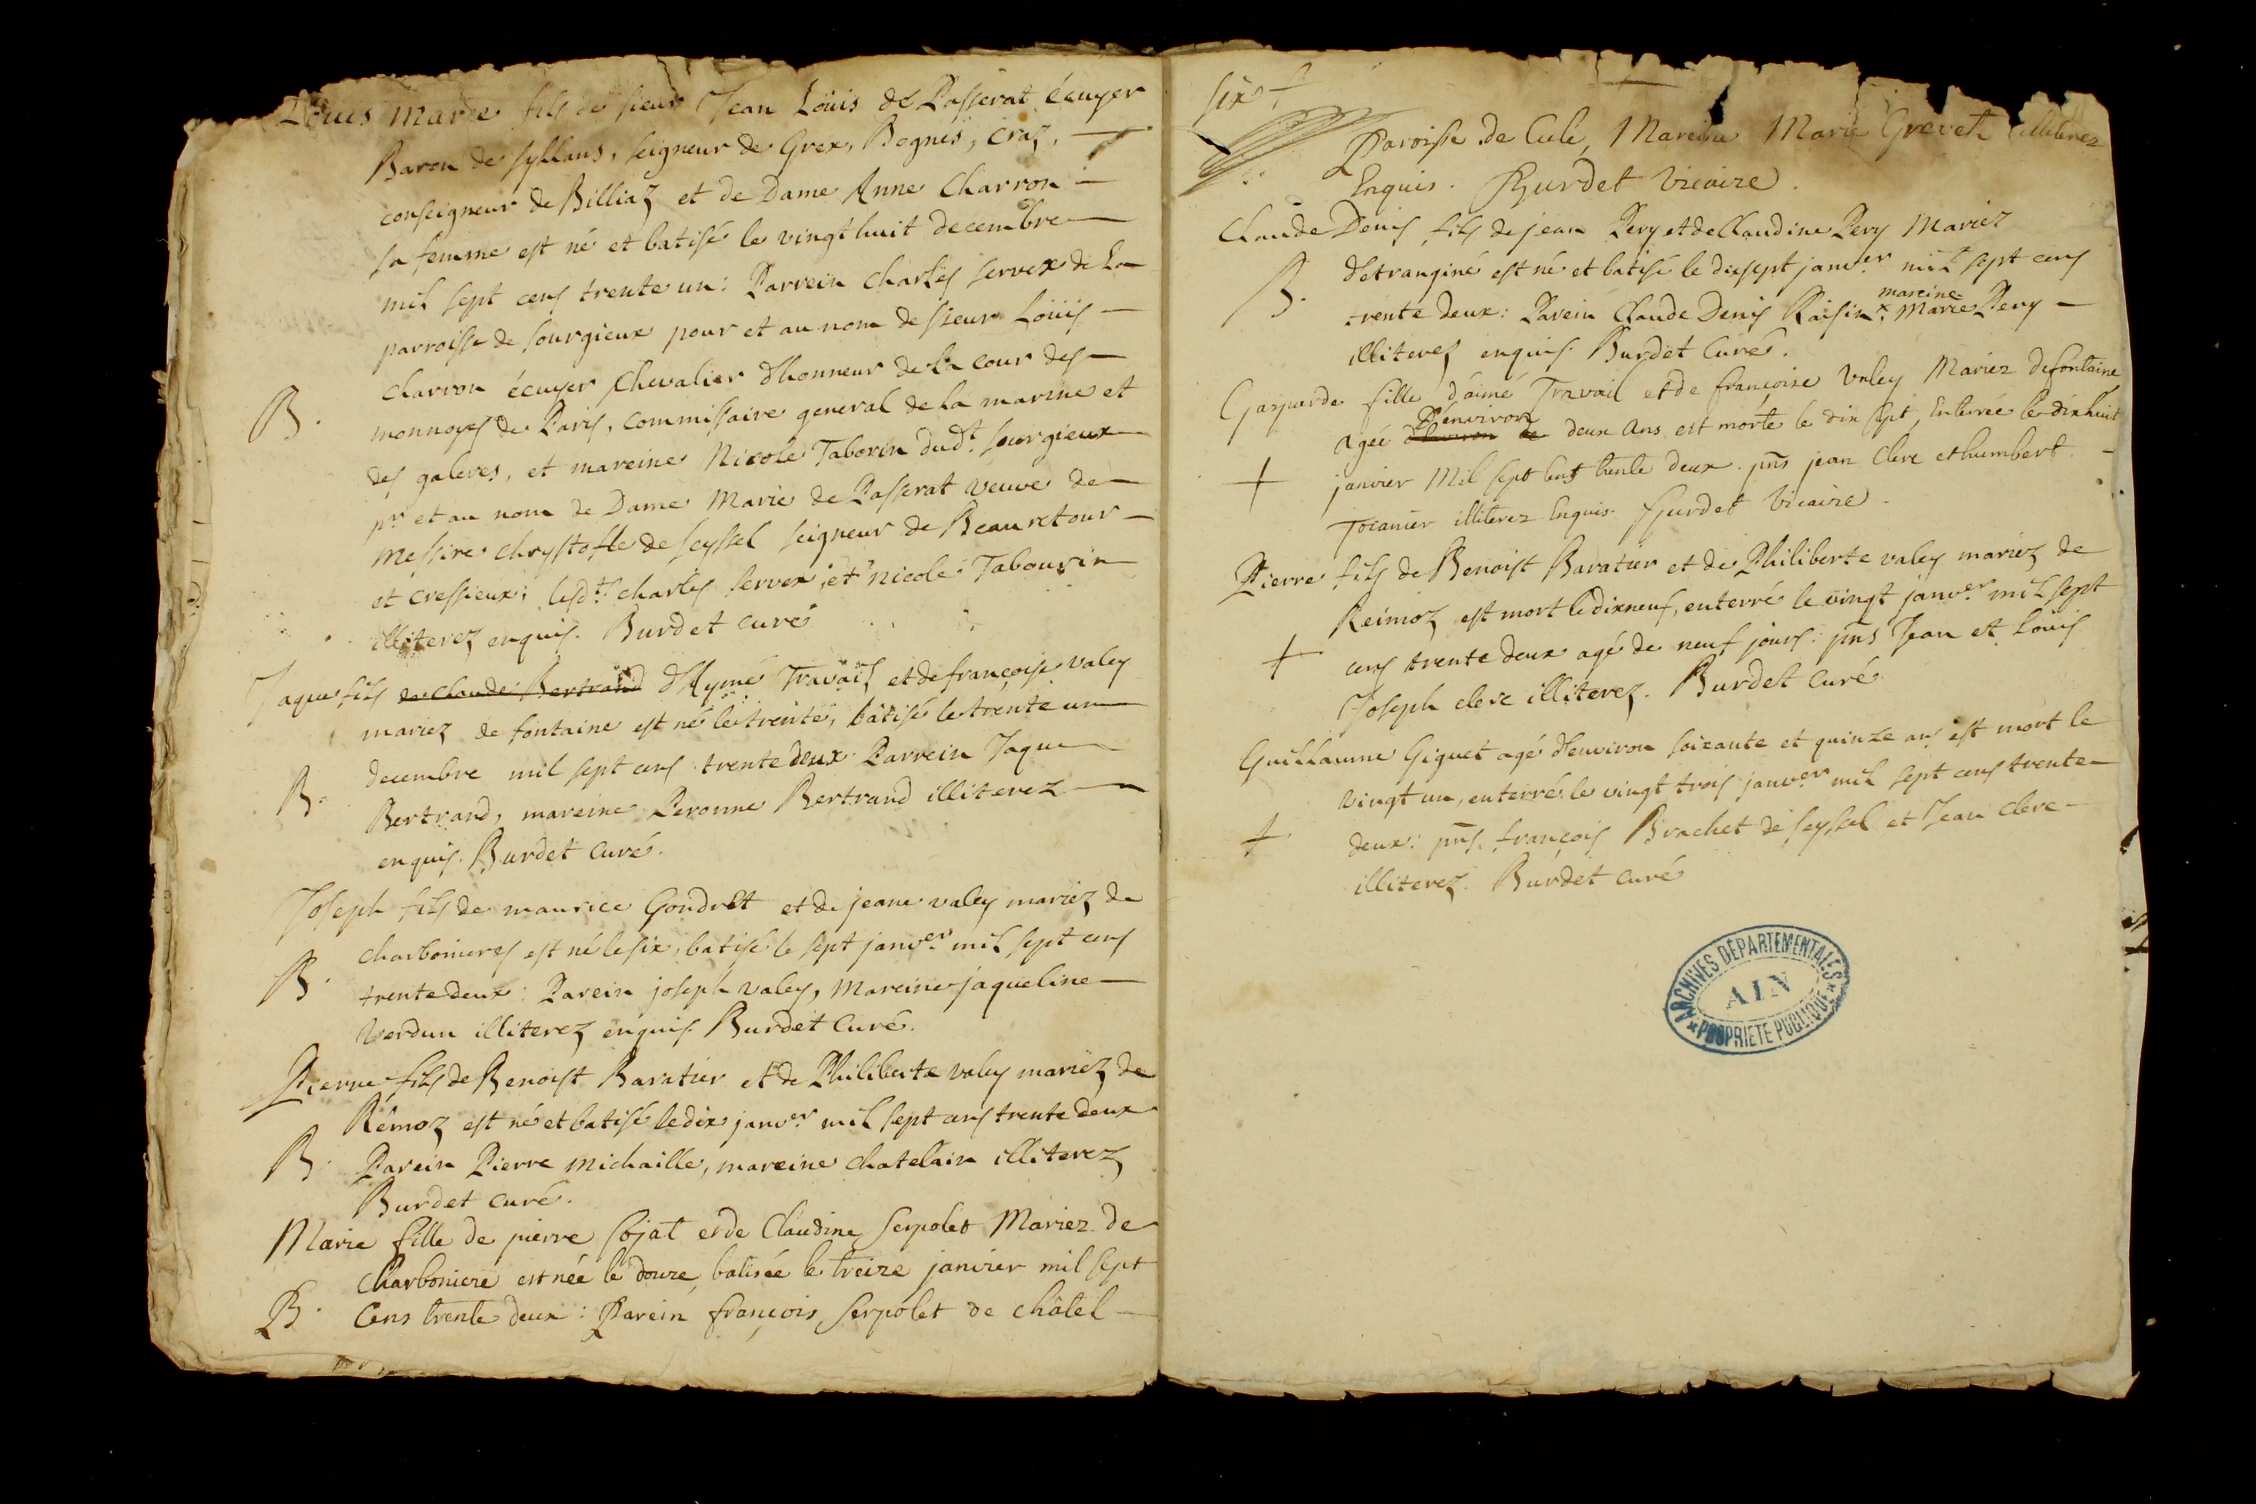 Louis Marie fils de sieur Jean Loüis de Passerat écuyer
Baron de Syllans, seigneur de Grex, Bognes, Craz,
conseigneur de Billiaz et de Dame Anne Charron
sa femme est né et batisé le vingt huit decembre
mil sept cens trente un: Parrein Charles Servex de la
parroisse de Sourgieux pour et au nom de sieur Loüis
Charron écuyer Chevalier d'honneur de la cour des
B.
monnoyes de Paris, commissaire general de la marine et
des galeres, et mareine Nicole Taborin dudt. Sourgieux
pr. et au nom de Dame Marie de Passerat veuve de
Messire Chrystofle de Seyssel seigneur de Beauretour
et Cressieux; lesdts. Charles Servex, et Nicole Tabourin
illiterez enquis. Burdet curé
Jaque fils de Claude Bertrand d'Aymé Travail et de françoise valey
mariez de fontaine est né le trente, bâtisé le trente un
B. decembre mil sept cens trente deux Parrein Jaque
Bertrand, mareine Peronne Bertrand illiterez
enquis. Burdet curé.
Joseph fils de maurice Gondret et de jeane valey mariez de
charbonieres est né le six, batisé le sept janver. mil sept cens
B. trente deux: Parein joseph valey, mareine jaqueline
Verdun illiterez enquis. Burdet curé.
Pierre fils de Benoist Baratier et de Philiberte valey mariez de
Rémoz est né et batisé le dix janver. mil sept cens trente deux
B. Parein Pierre Michaille, mareine chatelain illiterez
Burdet curé.
Marie fille de pierre Sojat et de Claudine Serpolet Mariez de
Charboniere est née le douze, batisée le treize janvier mil sept
B. Cens trente deux: Parein françois Serpolet de châtel
six
Paroisse de Cule, Mareine Marie Grevet illiterez
Enquis. Burdet Vicaire.
Claude Denis fils de jean Pery et de Claudine Pery Mariez
d'etranginé est né et batisé le dixsept janver. mil sept cens
B. trente deux: Parein Claude Denis Raisin x mareine Marie Pery
illiterez enquis. Burdet Curé.
Gasparde fille d'aimé Travail et de françoise Valey Mariez de fontaine
agée d'environ deux ans est morte le dix sept, Enterrée le dix huit
+ janvier Mil sept cens trente deux. pns jean Clerc et humbert
Tocanier illiterez Enquis. Burdet Vicaire.
Pierre fils de Benoist Baratier et de Philiberte valey mariez de
Reimoz est mort le dixneuf, enterré le vingt janver. mil sept
+ cens trente deux agé de neuf jours: pns Jean et Loüis
Joseph clerc illiterez. Burdet Curé
Guillaume Giguet agé d'environ soixante et quinze ans est mort le
vingt un, enterré le vingt trois janver. mil sept cens trente
+ deux: pns. françois Brachet de seyssel et Jean Clerc
illiterez. Burdet curé
ARCHIVES DÉPARTEMENTALES
AIN
PROPRIÉTÉ PUBLIQUE